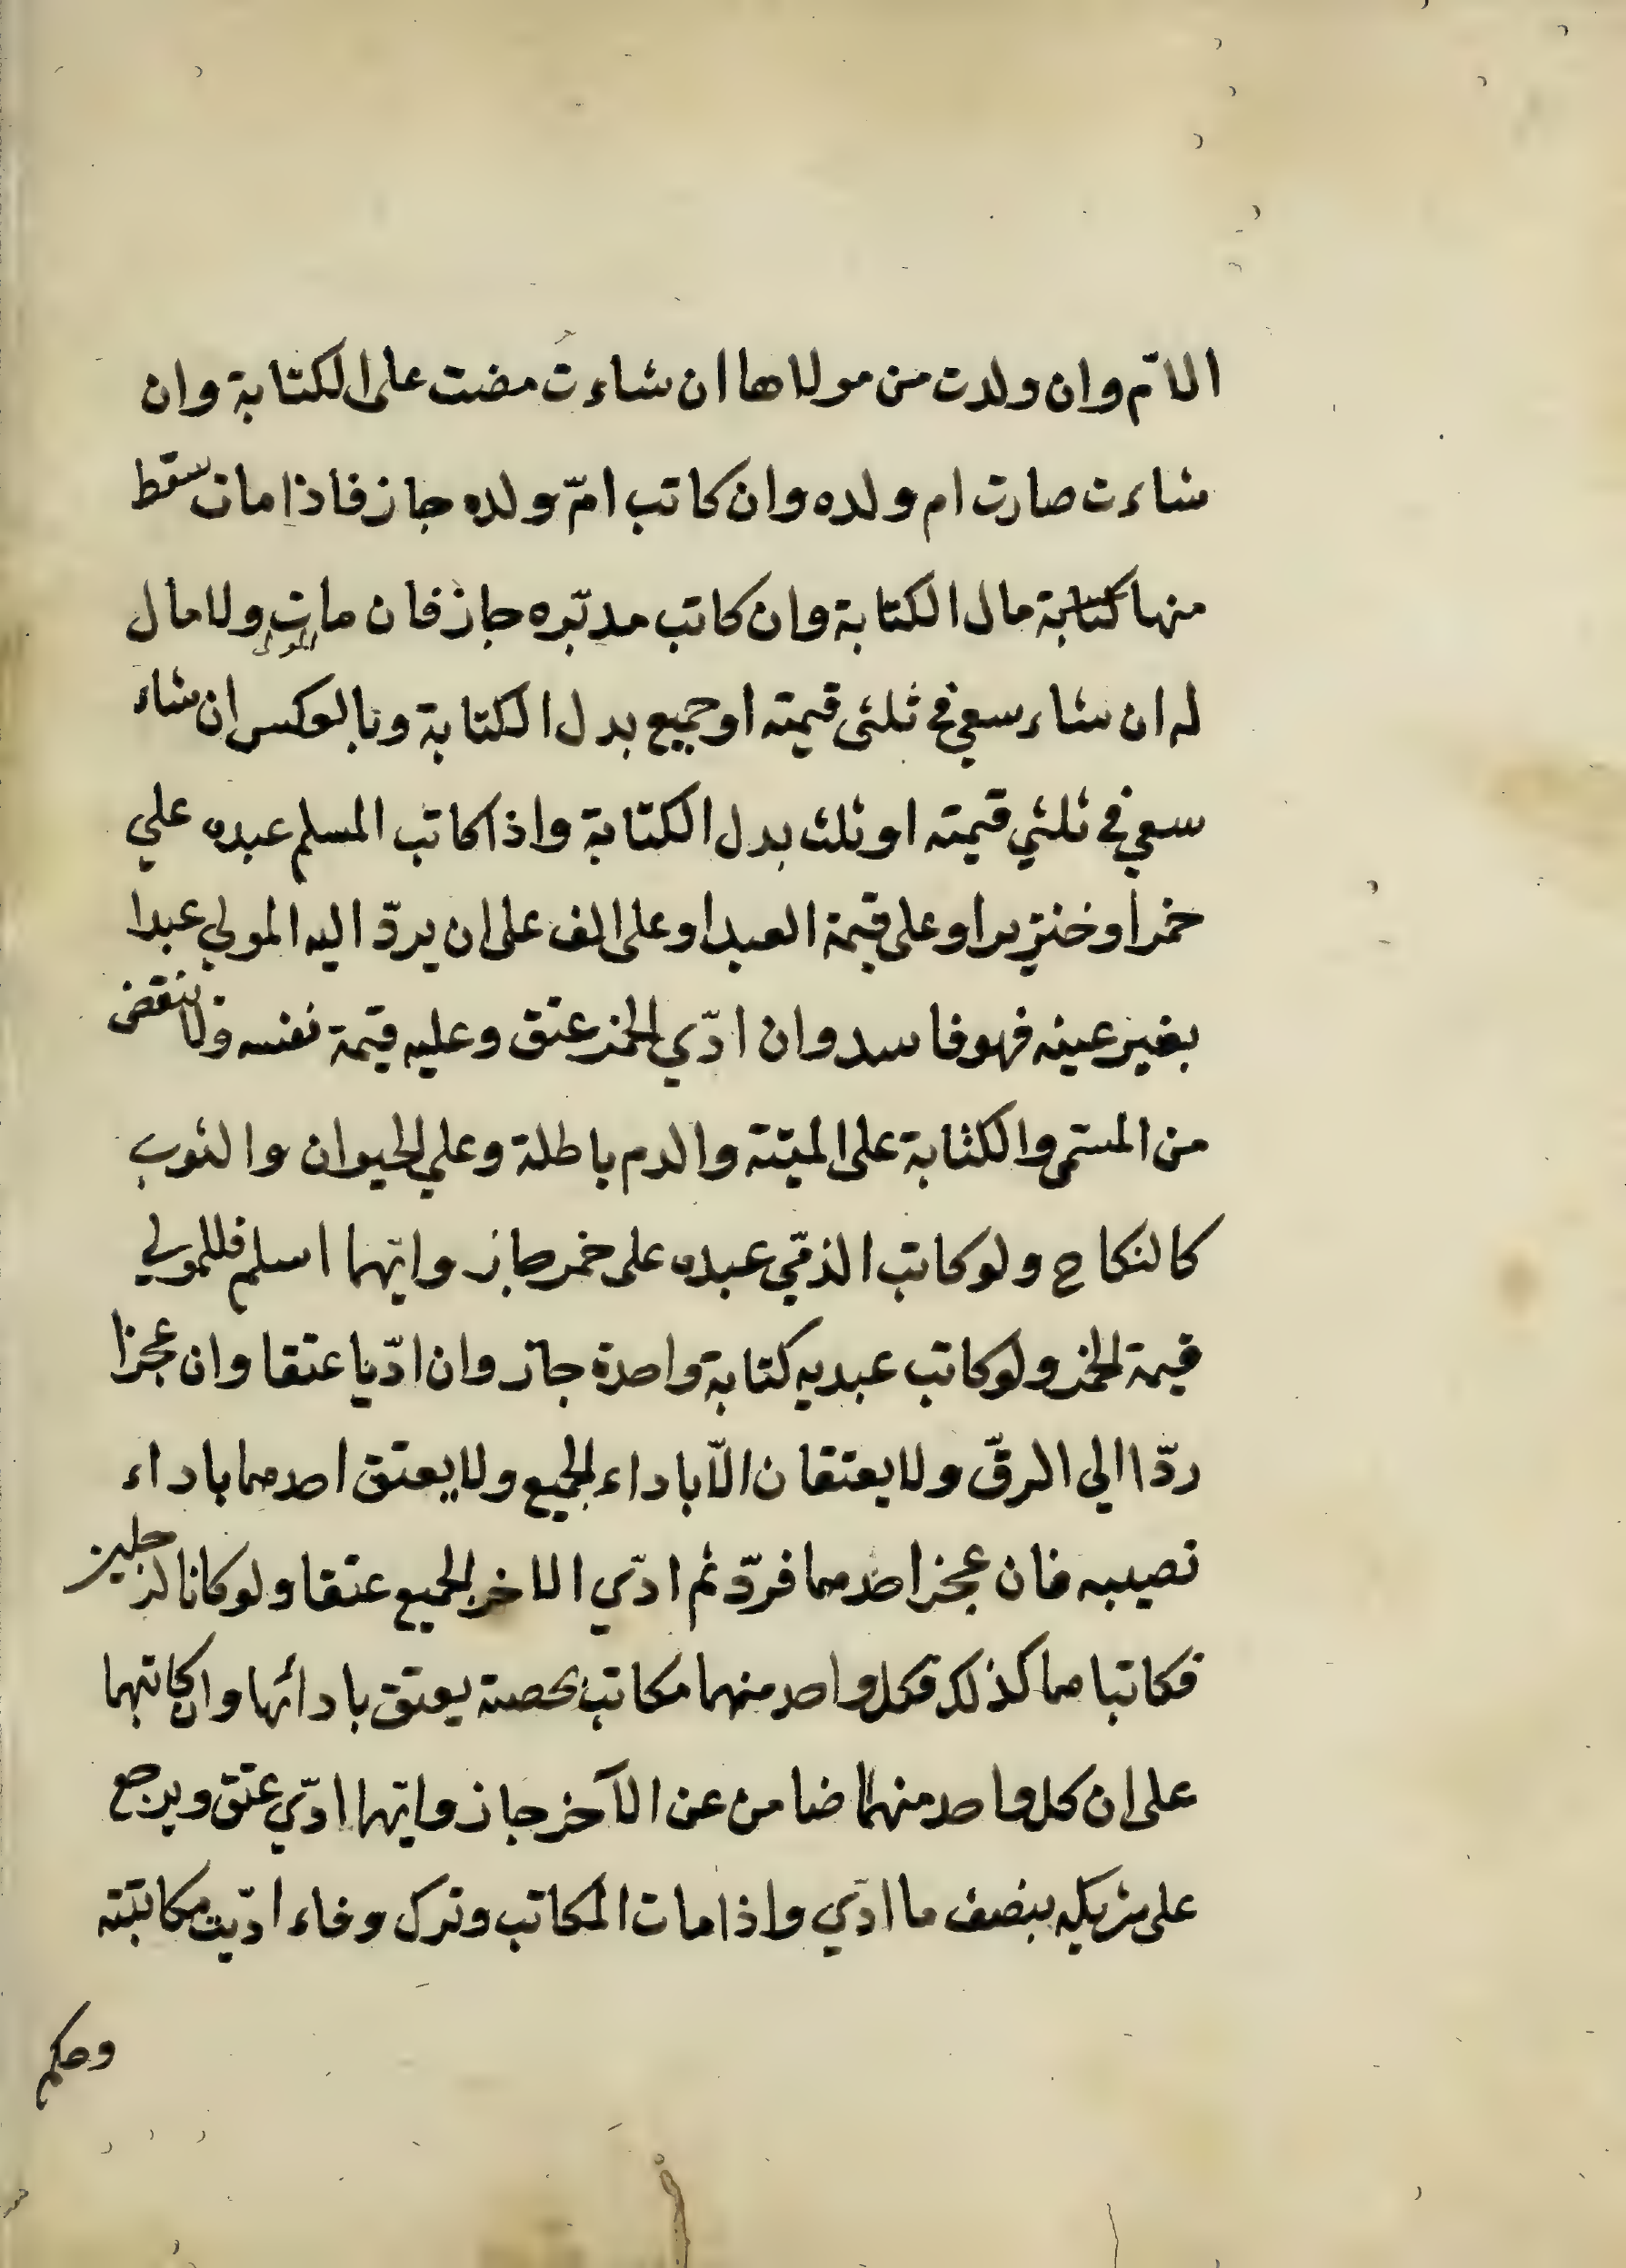 الامّ وان ولدت من مولاها ان شاءت مضت على الكتابة وان
شاءت صارت ام ولده وان كاتب امّ ولده جاز فاذا مات سقط
منها كتابة مال الكتابة وان كاتب مدبّره جاز فان مات المولى ولا مال
له ان شاء سعي في ثلثى قيمته او جميع بدل الكتابة وبالعكس ان شاء
سعي في ثلثي قيمته او ثلث بدل الكتابة واذا كاتب المسلم عبده علي
خمر او خنزير او على قيمة العبد او على الف على ان يردّ اليه المولي عبدا
بغير عينه فهو فاسد وان ادّي الخمر عتق وعليه قيمة نفسه ولا ينقض
من المسمّى والكتابة على الميتة والدم باطلة وعلي الحيوان والثوب
كالنكاح ولو كاتب الذمّي عبده على خمر جاز وايّهما اسلم فللمولي
قيمة الخمر ولو كاتب عبديه كتابة واحدة جاز وان ادّيا عتقا وان عجزا
ردّا الي الرقّ ولا يعتقان الّا باداء الجميع ولا يعتق احدهما باداء
نصيبه فان عجز احدهما فردّ ثم ادّي الاخر الجميع عتقا ولو كانا لرجلين
فكاتباهما كذلك فكل واحد منهما مكاتب بحصته يعتق بادائها وان كاتبهما
على ان كل واحد منهما ضامن عن الآخر جاز وايّهما ادّي عتق ويرجع
على شريكه بنصف ما ادّي واذا مات المكاتب وترك وفاء ادّيت مكاتبته
وحكم